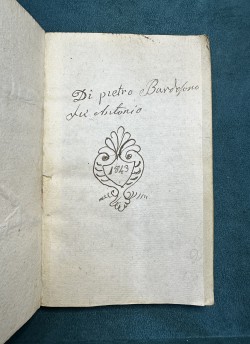 Di pietro Bardesono
di Antonio
1843